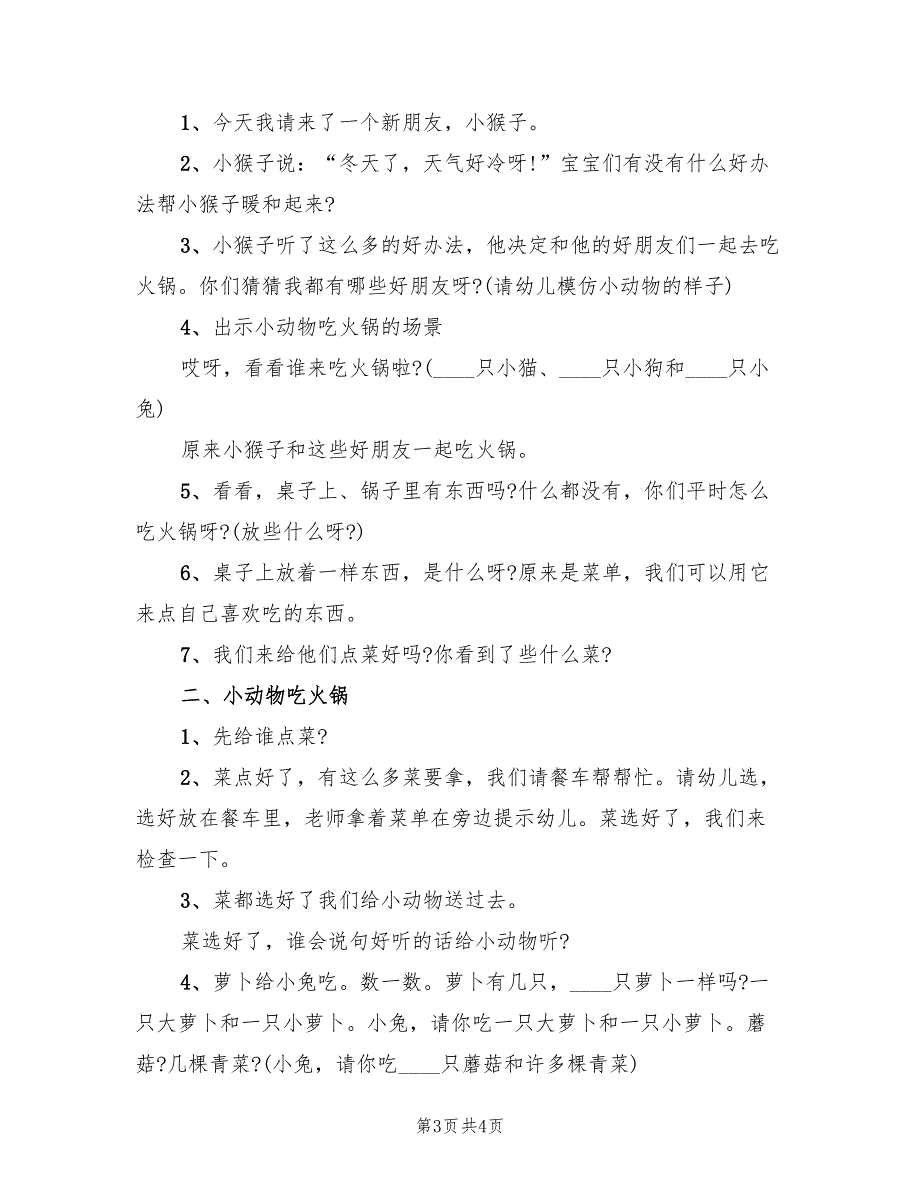 1、今天我请来了一个新朋友，小猴子。
2、小猴子说：“冬天了，天气好冷呀!”宝宝们有没有什么好办
法帮小猴子暖和起来?
3、小猴子听了这么多的好办法，他决定和他的好朋友们一起去吃
火锅。你们猜猜我都有哪些好朋友呀?(请幼儿模仿小动物的样子)
4、出示小动物吃火锅的场景
哎呀，看看谁来吃火锅啦?(____只小猫、____只小狗和____只小
兔)
原来小猴子和这些好朋友一起吃火锅。
5、看看，桌子上、锅子里有东西吗?什么都没有，你们平时怎么
吃火锅呀?(放些什么呀?)
6、桌子上放着一样东西，是什么呀?原来是菜单，我们可以用它
来点自己喜欢吃的东西。
7、我们来给他们点菜好吗?你看到了些什么菜?
二、小动物吃火锅
1、先给谁点菜?
2、菜点好了，有这么多菜要拿，我们请餐车帮帮忙。请幼儿选，
选好放在餐车里，老师拿着菜单在旁边提示幼儿。菜选好了，我们来
检查一下。
3、菜都选好了我们给小动物送过去。
菜选好了，谁会说句好听的话给小动物听?
4、萝卜给小兔吃。数一数。萝卜有几只，____只萝卜一样吗?一
只大萝卜和一只小萝卜。小兔，请你吃一只大萝卜和一只小萝卜。蘑
菇?几棵青菜?(小兔，请你吃____只蘑菇和许多棵青菜)
第3页共4页